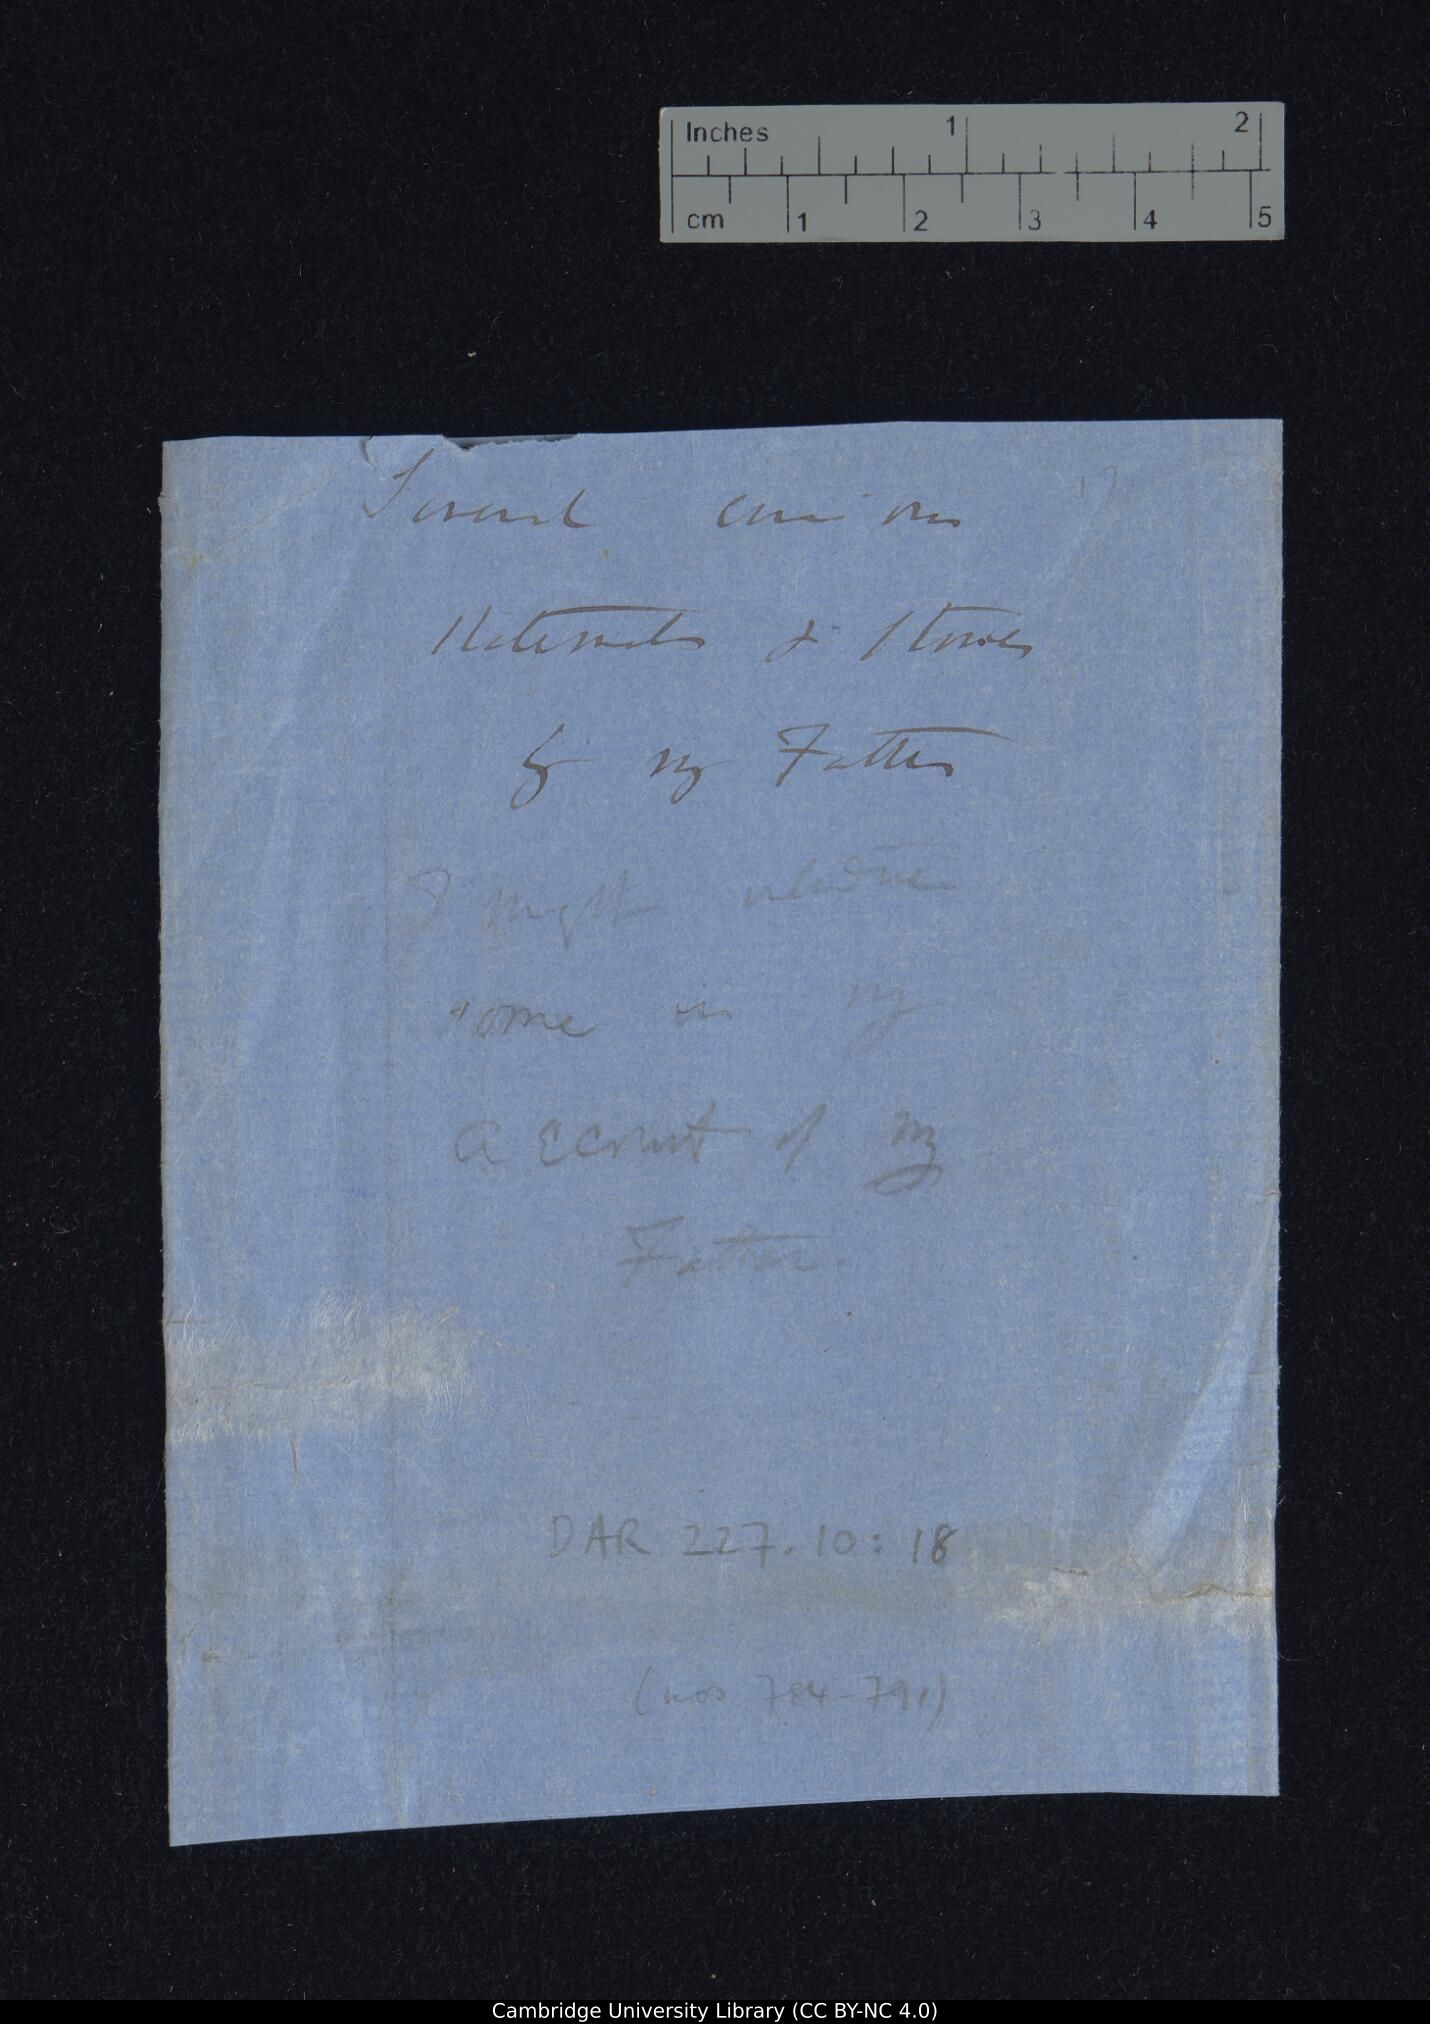 Inches 1 2
cm 1 2 3 4 5
17
Several curious
statements & stories
by my Father
I might
some in my
account of my
Father.
DAR 227.10:18
(nos 784-791)
Cambridge University Library (CC BY-NC 4.0)